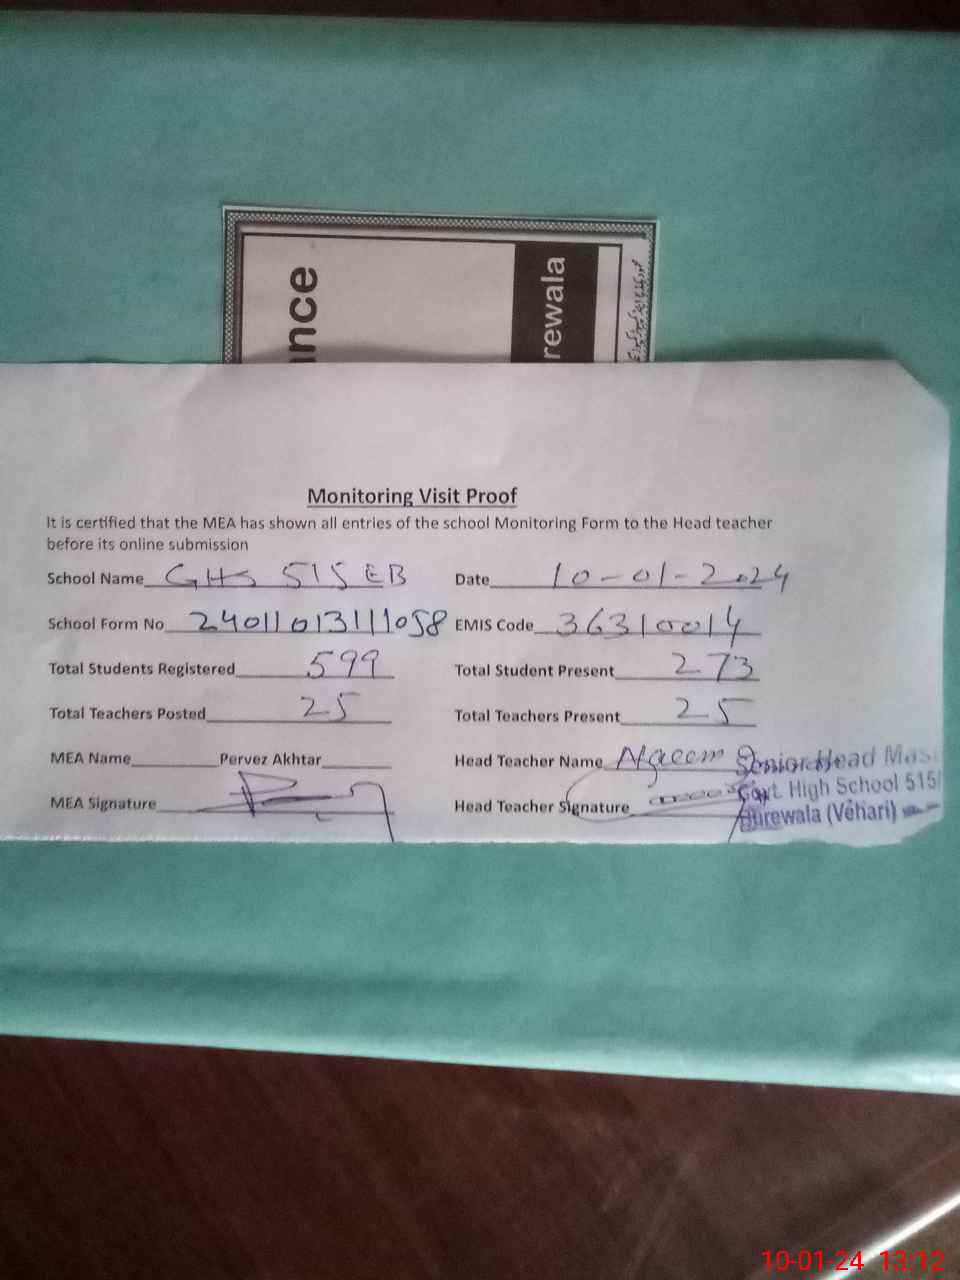 nce
rewala
Monitoring Visit Proof
It is certified that the MEA has shown all entries of the school Monitoring Form to the Head teacher
before its online submission
School Name GHS 515 EB Date 10-01-2024
School Form No 24011013111058 EMIS Code 36310014
Total Students Registered 599 Total Student Present 273
Total Teachers Posted 25 Total Teachers Present 25
MEA Name Pervez Akhtar Head Teacher Name Senior Head Mas
MEA Signature Head Teacher Signature Govt. High School 515/
Burewala (Vehari)
10-01-24 13:12